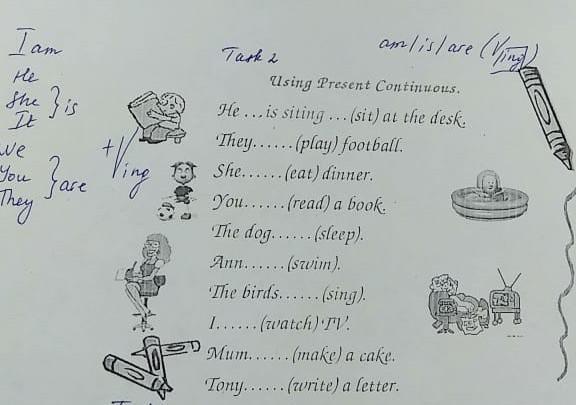 I am
He
She } is
It
We
You } are
They
+Ving
Task 2
am/is/are (Ving)
Using Present Continuous.
He ...is siting ...(sit) at the desk.
They......(play) football.
She......(eat) dinner.
You......(read) a book.
The dog......(sleep).
Ann......(swim).
The birds......(sing).
I......(watch) TV.
Mum......(make) a cake.
Tony......(write) a letter.